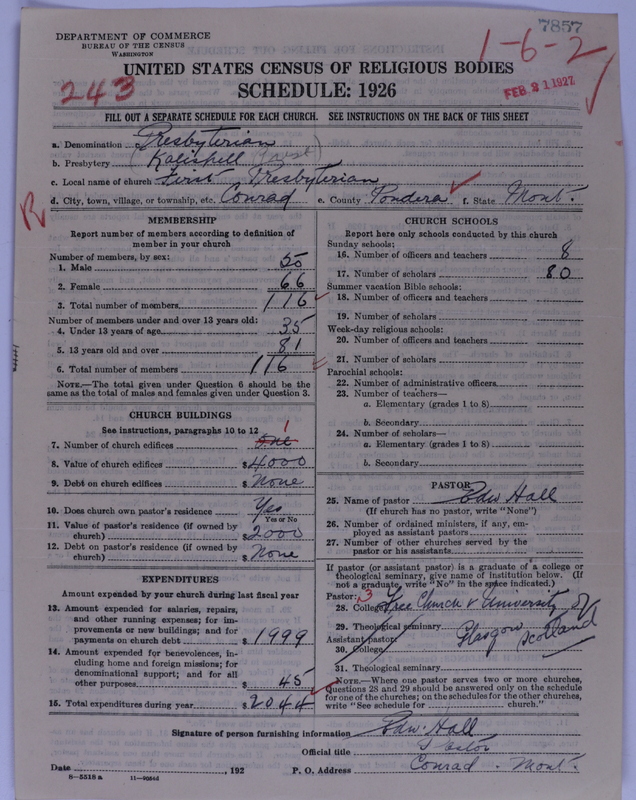 7857
DEPARTMENT OF COMMERCE
BUREAU OF THE CENSUS
WASHINGTON
1-6-2
243
FEB 21 1927
UNITED STATES CENSUS OF RELIGIOUS BODIES
SCHEDULE: 1926
FILL OUT A SEPARATE SCHEDULE FOR EACH CHURCH. SEE INSTRUCTIONS ON THE BACK OF THIS SHEET
a. Denomination Presbyterian
b. Presbytery Kalispell
c. Local name of church First Presbyterian
d. City, town, village, or township, etc. Conrad e. County Pondera f. State Mont.
MEMBERSHIP
Report number of members according to definition of
member in your church
Number of members, by sex:
1. Male 50
2. Female 66
3. Total number of members 116
Number of members under and over 13 years old:
4. Under 13 years of age 35
5. 13 years old and over 81
6. Total number of members 116
NOTE.—The total given under Question 6 should be the
same as the total of males and females given under Question 3.
CHURCH BUILDINGS
See instructions, paragraphs 10 to 12
1
7. Number of church edifices One
8. Value of church edifices $4000
9. Debt on church edifices $None
10. Does church own pastor's residence Yes
Yes or No
11. Value of pastor's residence (if owned by
church) $2000
12. Debt on pastor's residence (if owned by
church) $None
EXPENDITURES
Amount expended by your church during last fiscal year
13. Amount expended for salaries, repairs,
and other running expenses; for im-
provements or new buildings; and for
payments on church debt $1999
14. Amount expended for benevolences, in-
cluding home and foreign missions; for
denominational support; and for all
other purposes $45
15. Total expenditures during year $2044
CHURCH SCHOOLS
Report here only schools conducted by this church
Sunday schools:
16. Number of officers and teachers 8
17. Number of scholars 80
Summer vacation Bible schools:
18. Number of officers and teachers
19. Number of scholars
Week-day religious schools:
20. Number of officers and teachers
21. Number of scholars
Parochial schools:
22. Number of administrative officers
23. Number of teachers—
a. Elementary (grades 1 to 8)
b. Secondary
24. Number of scholars—
a. Elementary (grades 1 to 8)
b. Secondary
PASTOR
25. Name of pastor Edw Hall
(If church has no pastor, write "None")
26. Number of ordained ministers, if any, em-
ployed as assistant pastors
27. Number of other churches served by the
pastor or his assistants
If pastor (or assistant pastor) is a graduate of a college or
theological seminary, give name of institution below. (If
not a graduate, write "No" in the space indicated.)
Pastor: 3
28. College Free Church & University of
29. Theological seminary Glasgow Scotland
Assistant pastor:
30. College
31. Theological seminary
NOTE.—Where one pastor serves two or more churches,
Questions 28 and 29 should be answered only on the schedule
for one of the churches; on the schedules for the other churches,
write "See schedule for church."
Signature of person furnishing information Edw. Hall
Official title Pastor
Date , 192 P. O. Address Conrad. Mont.
8-5518 a